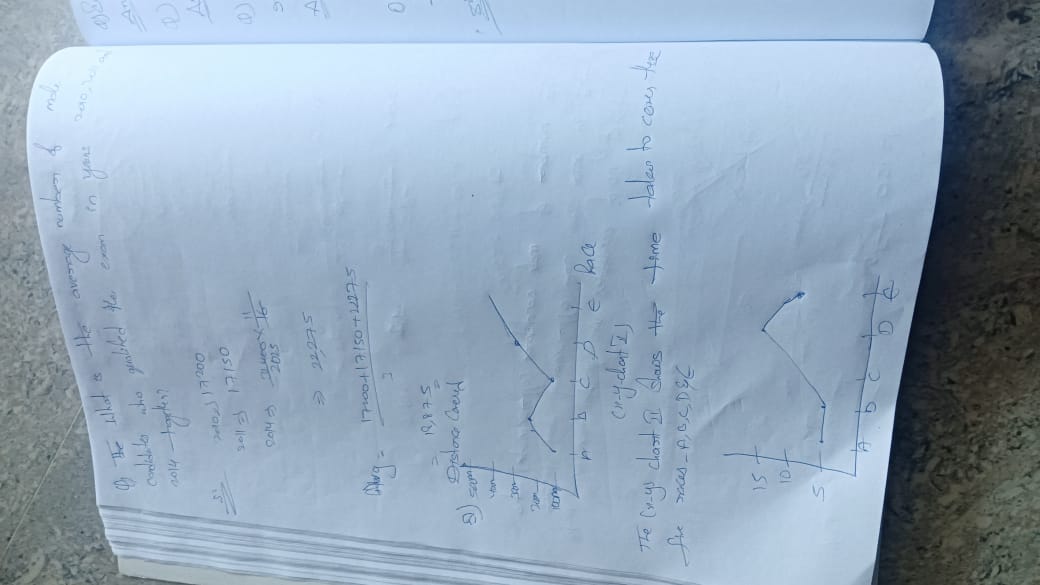 Q) The What is the average number of male
candidates who qualified the exam in years 2010, 2011 and
2014 together?
Sol
2010 => 17200
2011 => 17150
=> 22,275
Avg = 17200+17150+22275
3
= 18,875
Q) Distance Covered
500m
400m
300m
200m
100m
A B C D E Race
(x-y chart I)
The (x-y) chart II shows the time taken to cover the
five races - A, B, C, D & E
15
10
5
A B C D E